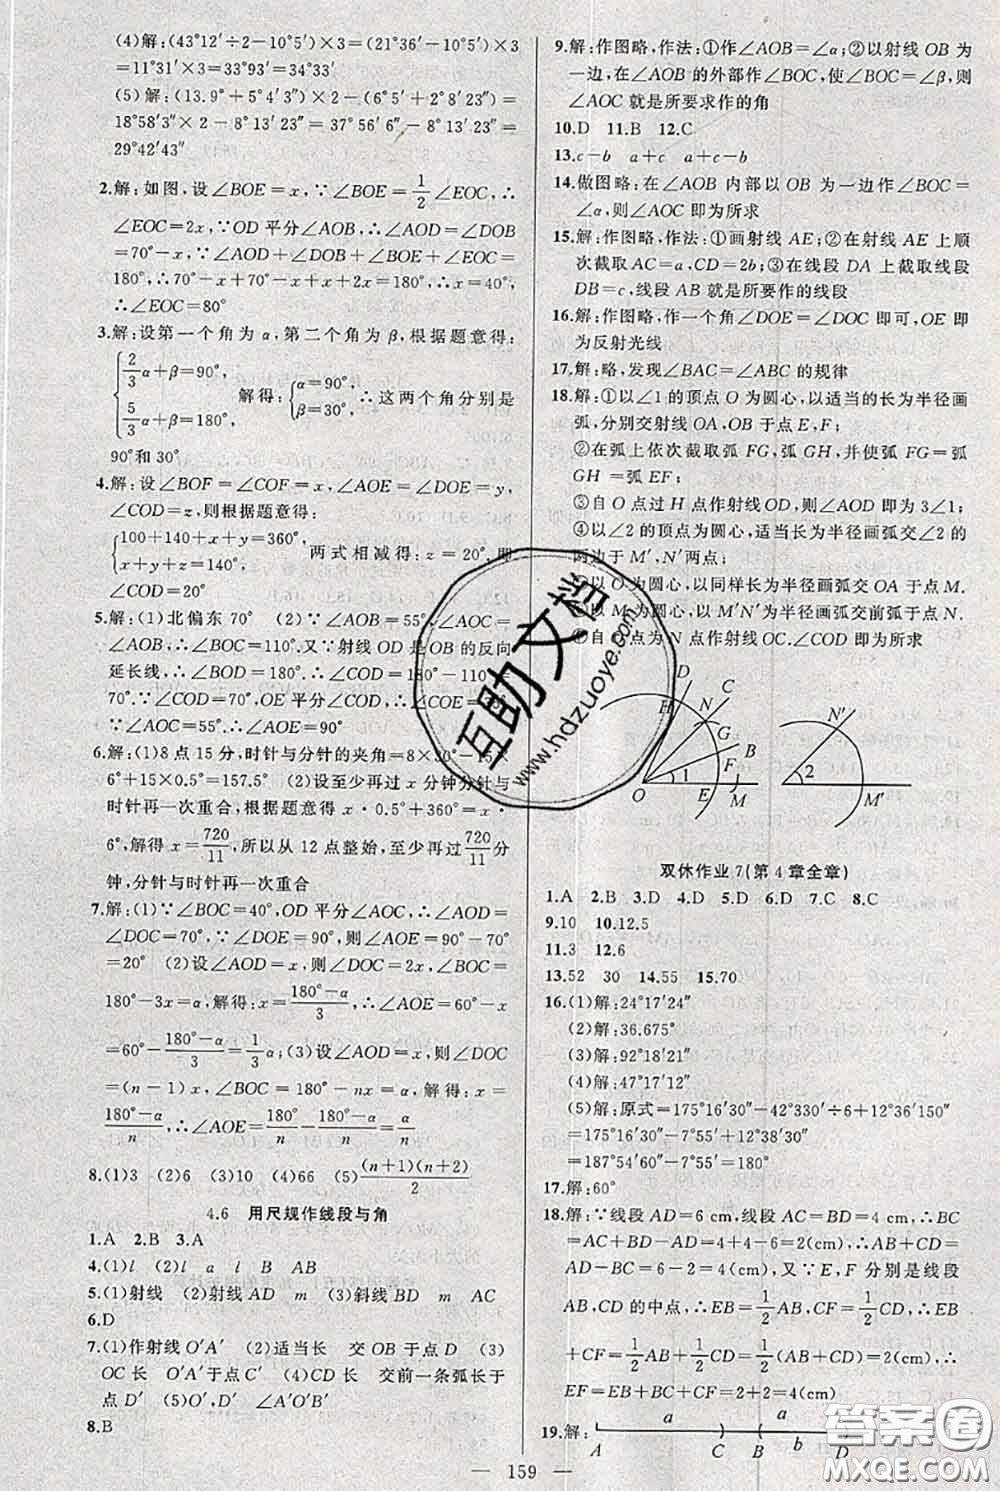 (4)解:(43°12′÷2－10°5′)×3＝(21°36′－10°5′)×3
＝11°31′×3＝34°33′
(5)解:(13.9°＋5°4′3″)×2－(6°5′＋2°8′23″)＝
18°58′3″×2－8°13′23″＝37°56′6″－8°13′23″＝
29°42′43″
2.解:如图,设∠BOE＝x,∵∠BOE＝1/2∠EOC,∴
∠EOC＝2x,∵OD平分∠AOB,∴∠AOD＝∠DOB
＝70°－x,∵∠AOD＋∠DOB＋∠BOE＋∠EOC＝
180°,∴70°－x＋70°－x＋x＋2x＝180°,∴x＝40°,
∴∠EOC＝80°
3.解:设第一个角为α,第二个角为β,根据题意得:
{2/3α＋β＝90°,
5/3α＋β＝180°, 解得:{α＝90°, β＝30°, ∴这两个角分别是
90°和30°
4.解:设∠BOF＝∠COF＝x,∠AOE＝∠DOE＝y
,∠COD＝z,则根据题意得:
{100＋140＋x＋y＝360°,
x＋y＋z＝140°, 两式相减得:z＝20°,即
∠COD＝20°
5.解:(1)北偏东70° (2)∵∠AOB＝55°,∠AOC＝
∠AOB,∴∠BOC＝110°.又∵射线OD是OB的反向
延长线,∴∠BOD＝180°.∴∠COD＝180°－110°＝
70°,∵∠COD＝70°,OE平分∠COD,∴∠COE＝35°
∵∠AOC＝55°.∴∠AOE＝90°
6.解:(1)8点15分,时针与分针的夹角＝8×30°－15×
6°＋15×0.5°＝157.5° (2)设至少再过x分钟分针与
时针再一次重合,根据题意得x·0.5＋360°＝x·
6°,解得x＝720/11,所以从12点整始,至少再过720/11分
钟,分针与时针再一次重合
7.解:(1)∵∠BOC＝40°,OD平分∠AOC,∴∠AOD＝
∠DOC＝70°,∵∠DOE＝90°,∴∠AOE＝90°－70°
＝20° (2)设∠AOD＝x,则∠DOC＝2x,∠BOC＝
180°－3x＝α,解得:x＝(180°－α)/3,∴∠AOE＝60°－x
＝60°－(180°－α)/3＝1/3α;(3)设∠AOD＝x,则∠DOC
＝(n－1)x,∠BOC＝180°－nx＝α,解得:x＝
(180°－α)/n,∴∠AOE＝180°/n－(180°－α)/n＝α/n
8.(1)3 (2)6 (3)10 (4)66 (5)(n＋1)(n＋2)/2
4.6 用尺规作线段与角
1.A 2.B 3.A
4.(1)l (2)l a l B AB
5.(1)射线 (2)射线AD m (3)斜线BD m AC
6.D
7.(1)作射线O′A′ (2)适当长 交OB于点D (3)
OC长 O′A′于点C′ (4)CD长 交前一条弧长于
点D′ (5)O′,D′ ∠A′O′B′
8.B
9.解:作图略,作法:①作∠AOB＝∠α;②以射线OB为
一边,在∠AOB的外部作∠BOC,使∠BOC＝∠β,则
∠AOC就是所要求作的角
10.D 11.B 12.C
13.c－b a＋c a＋c－b
14.做图略:在∠AOB内部以OB为一边作∠BOC＝
∠α,则∠AOC即为所求
15.解:作图略,作法:①画射线AE;②在射线AE上顺
次截取AC＝a,CD＝2b;③在线段DA上截取线段
DB＝c,线段AB就是所要作的线段
16.解:作图略,作一个角∠DOE＝∠DOC即可,OE即
为反射光线
17.解:略,发现∠BAC＝∠ABC的规律
18.解:①以∠1的顶点O为圆心,以适当的长为半径画
弧,分别交射线OA,OB于点E,F;
②在弧上依次截取弧FG,GH,并使弧FG＝弧
GH＝弧EF;
③自O点过H点作射线OD,则∠AOD即为3∠1;
④以∠2的顶点为圆心,适当长为半径画弧交∠2的
两边于M′,N′两点;
以O为圆心,以同样长为半径画弧交OA于点M.
以M为圆心,以M′N′为半径画弧交前弧于点N.
自O点为N点作射线OC.∠COD即为所求
D C H N G B F 1 O E M
N′ 2 M′
双休作业7(第4章全章)
1.A 2.B 3.D 4.D 5.D 6.D 7.C 8.C
9.10 10.12.5
11.3 12.6
13.52 30 14.55 15.70
16.(1)解:24°17′24″
(2)解:36.675°
(3)解:92°18′21″
(4)解:47°17′12″
(5)解:原式＝175°16′30″－42°330′÷6＋12°36′150″
＝175°16′30″－7°55′＋12°38′30″
＝187°54′60″－7°55′＝180°
17.解:60°
18.解:∵线段AD＝6cm,线段AC＝BD＝4cm,∴BC
＝AC＋BD－AD＝4＋4－6＝2(cm),∴AB＝AD
－BD＝6－4＝2(cm),又∵E,F分别是线段
AB,CD的中点,∴EB＝1/2AB,CF＝1/2CD,∴EB
＋CF＝1/2AB＋1/2CD＝1/2(AB＋CD)＝2(cm),∴
EF＝EB＋BC＋CF＝2＋2＝4(cm)
19.解: a a
A C B b D
159
互助文档
www.hdzuoye.com
答案圈
MXQE.COM